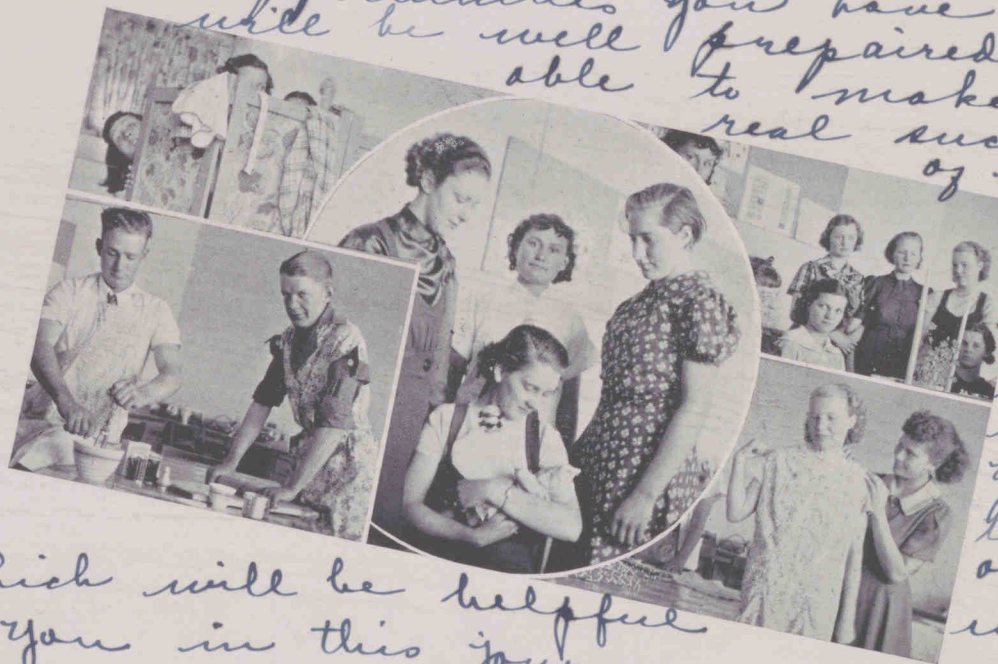 you have
will be well prepaired
able to make
real suc
of
hich will be helpful
you in this jou